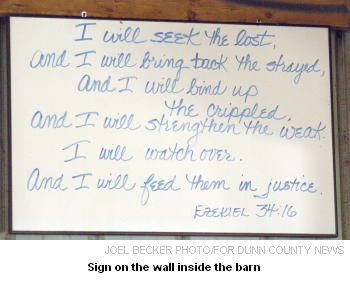 I will seek the lost,
and I will bring back the strayed,
and I will bind up
the crippled,
and I will strengthen the weak.
I will watch over.
And I will feed them in justice.
EZEKIEL 34:16
JOEL BECKER PHOTO/FOR DUNN COUNTY NEWS
Sign on the wall inside the barn